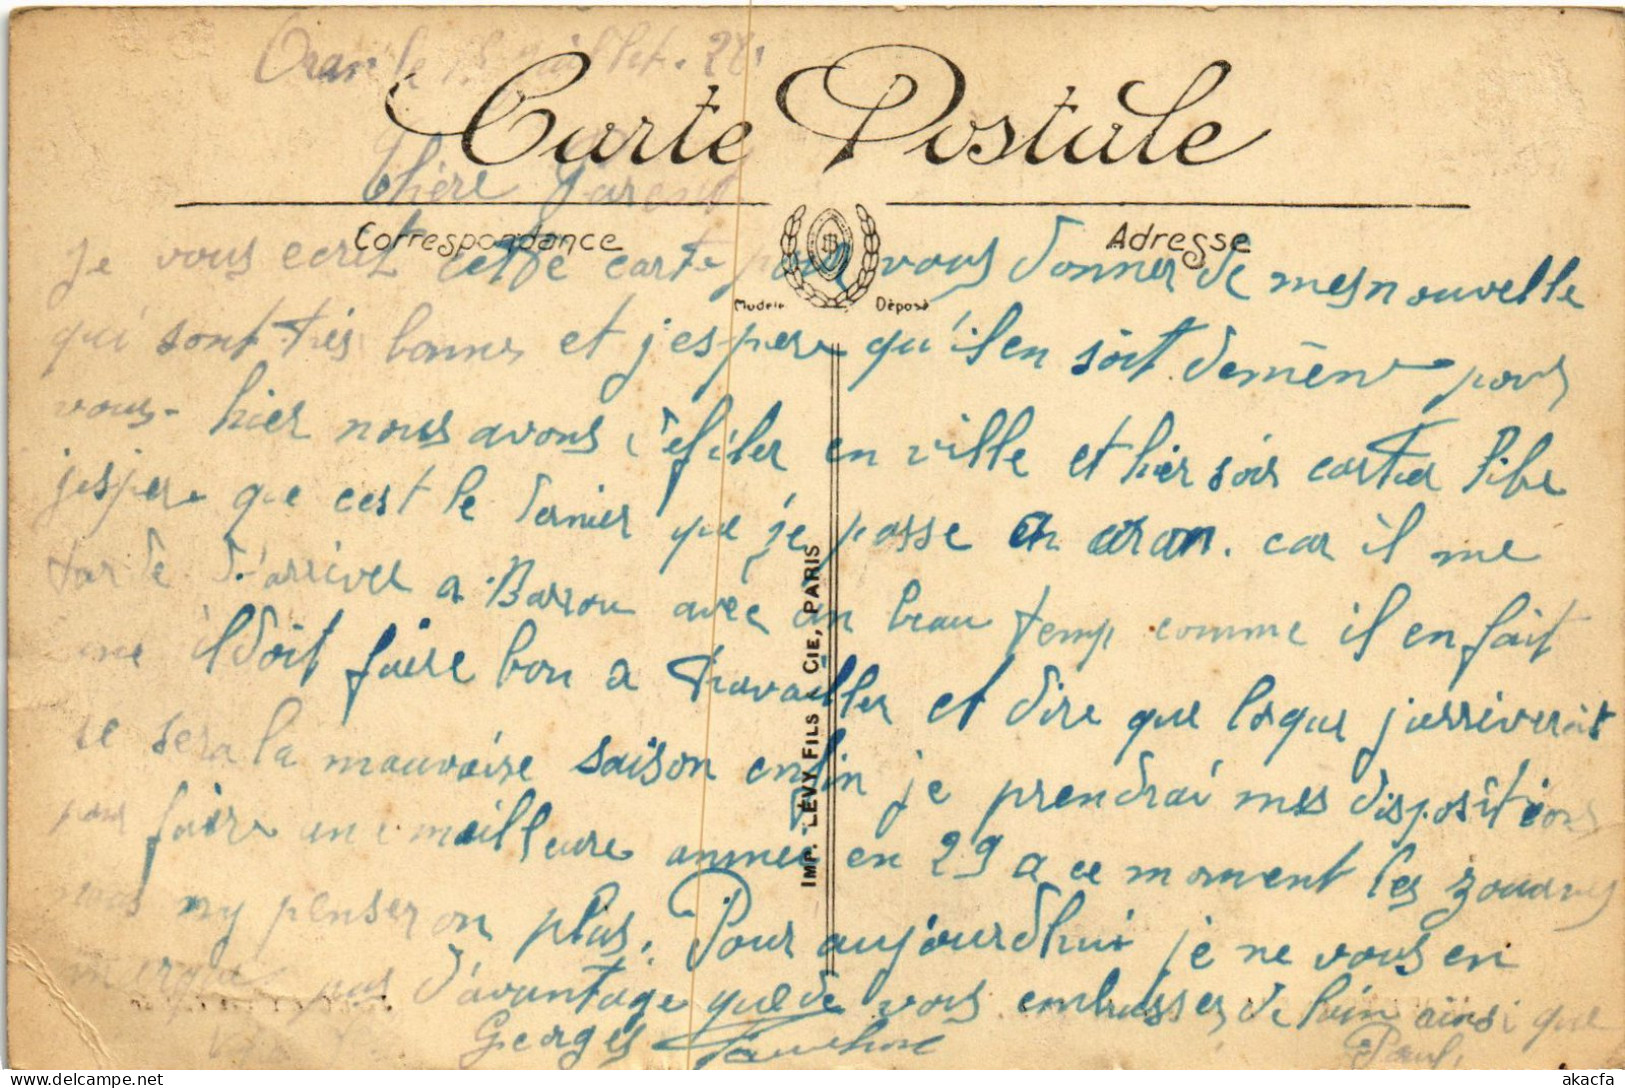 Oran le 15 juillet. 28.
Carte Postale
Chère Parent
Correspondance
Adresse
Modèle Déposé
je vous ecrit cette carte pour vous donner de mes nouvelle
qui sont très bonnes et j'espere qu'il en soit de même pour
vous. hier nous avons défiler en ville et hier soir cartier libre
j'espere que c'est le dernier que je passe en oran. car il me
tarde d'arriver a Barrou avec un beau temp comme il en fait
il doit faire bon a travailler et dire que lorque j'arriverait
se sera la mauvaise saison enfin je prendrai mes dispositions
pour faire une meilleure annee en 29 a ce moment les zouaves
nous ny penseron plus. Pour aujourd'hui je ne vous en
pas d'avantage que de vous embrasser de loin ainsi que
Georges
Paul.
IMP. LÉVY FILS ET CIE, PARIS
akacfa